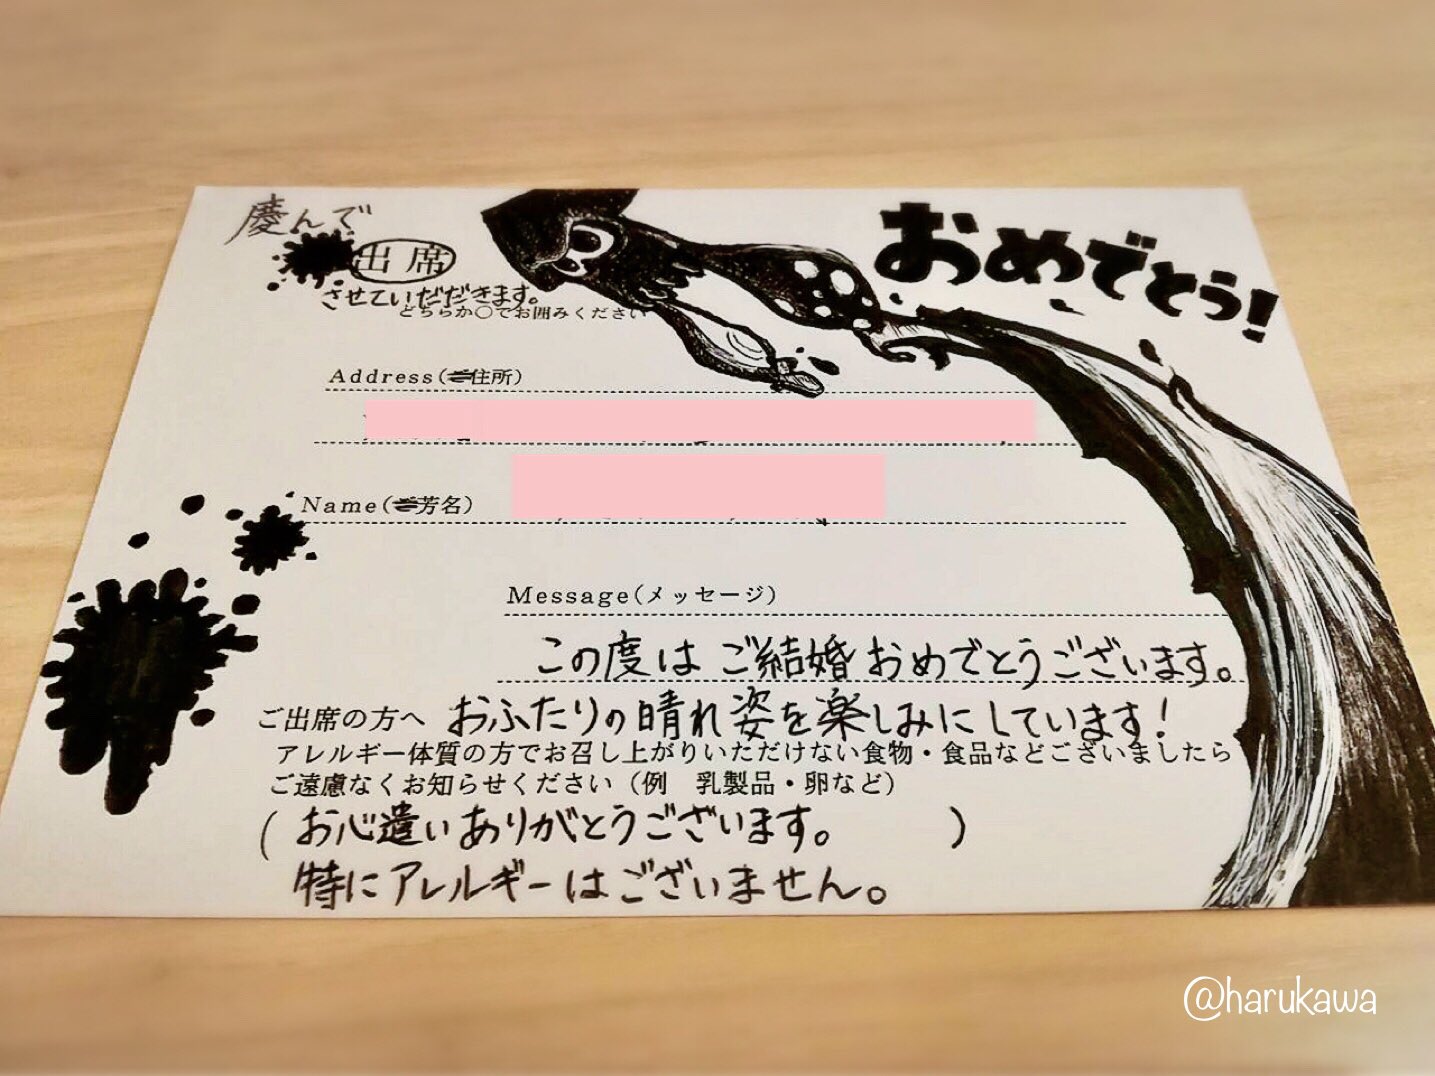 慶んで
出席
おめでとう!
させていただきます。
どちらか○でお囲みください
Address(住所)
Name(芳名)
Message(メッセージ)
この度はご結婚おめでとうございます。
ご出席の方へ おふたりの晴れ姿を楽しみにしています!
アレルギー体質の方でお召し上がりいただけない食物・食品などございましたら
ご遠慮なくお知らせください(例 乳製品・卵など)
(お心遣いありがとうございます。)
特にアレルギーはございません。
@harukawa